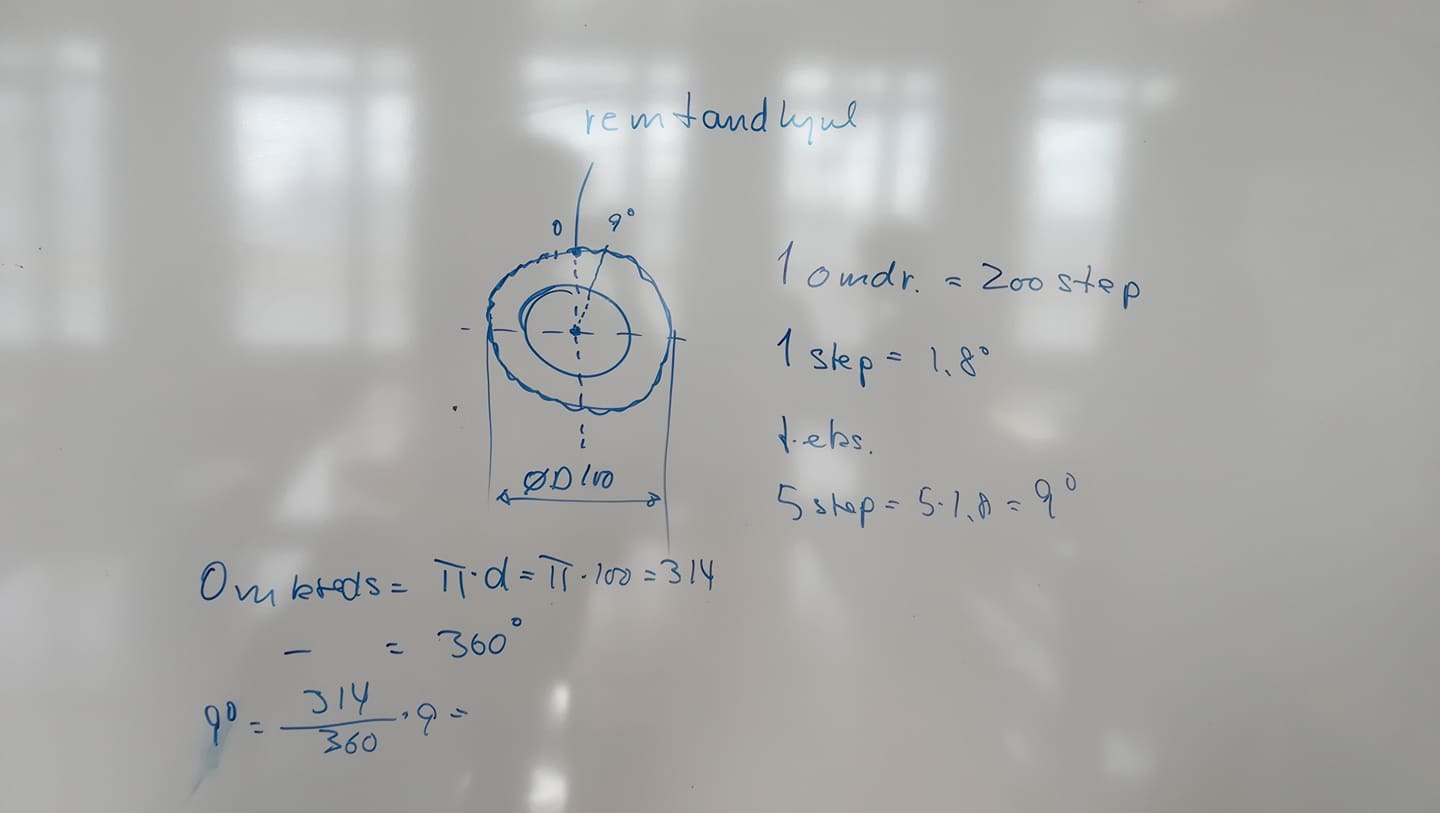 remtandhjul
0 9°
1 omdr. = 200 step
1 step = 1.8°
f.eks.
5 step = 5·1.8 = 9°
ØD100
Omkreds = π·d = π·100 = 314
— = 360°
9° = 314/360 · 9 =